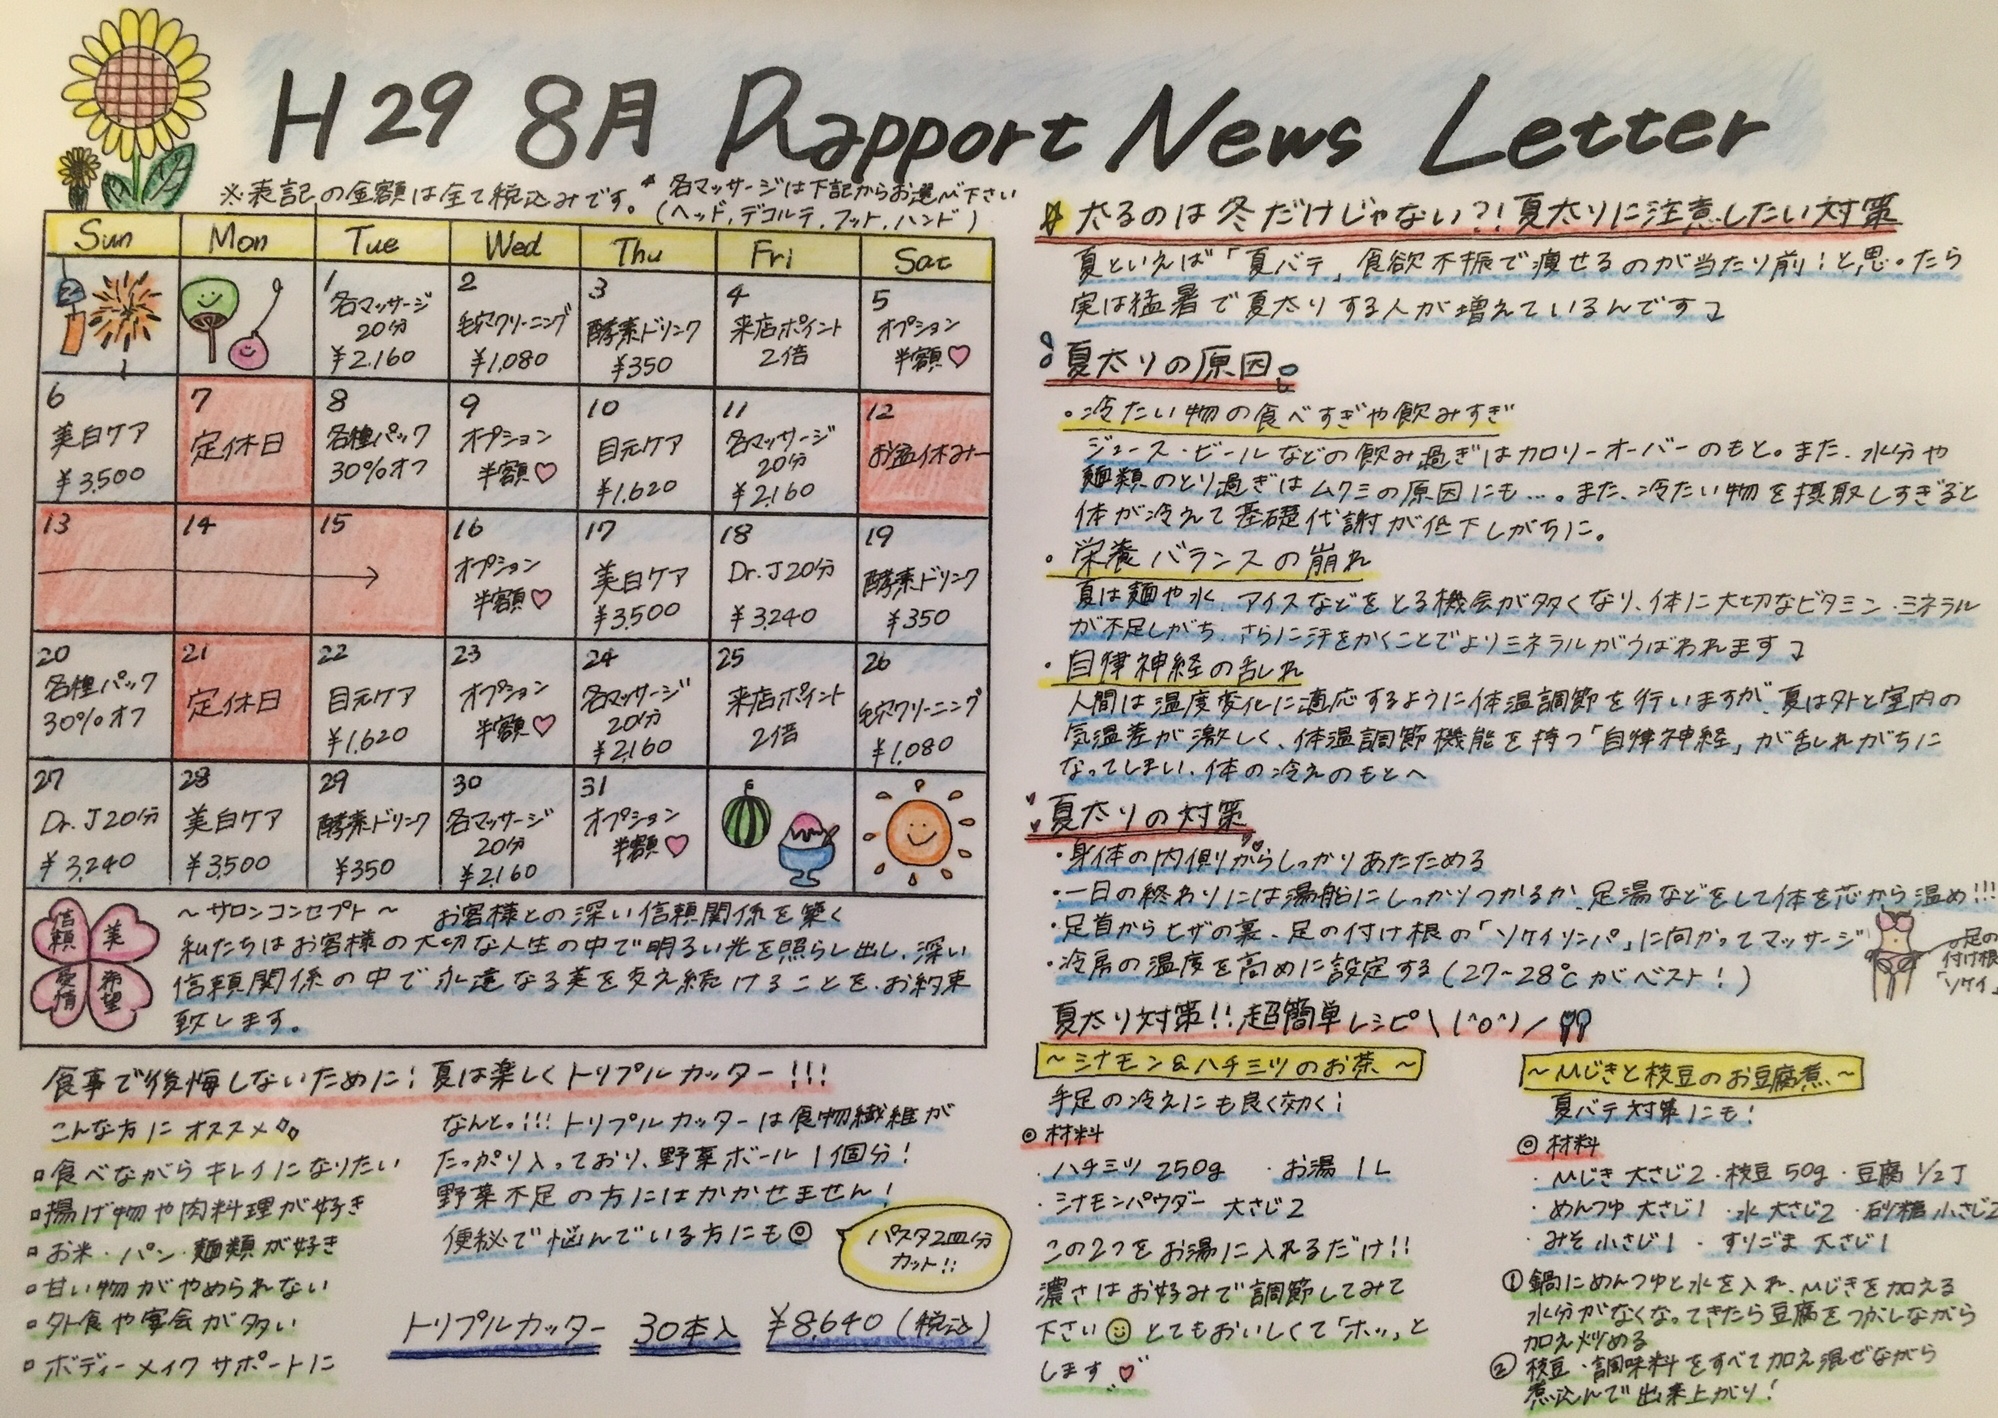 H29 8月 Rapport News Letter
※表記の金額は全て税込みです。
* 各マッサージは下記からお選び下さい
(ヘッド, デコルテ, フット, ハンド)
Sun Mon Tue Wed Thu Fri Sat
1
各マッサージ
20分
¥2,160
2
毛穴クリーニング
¥1,080
3
酵素ドリンク
¥350
4
来店ポイント
2倍
5
オプション
半額♡
6
美白ケア
¥3,500
7
定休日
8
各種パック
30%オフ
9
オプション
半額♡
10
目元ケア
¥1,620
11
各マッサージ
20分
¥2,160
12
お盆休み
13
14
15
16
オプション
半額♡
17
美白ケア
¥3,500
18
Dr.J 20分
¥3,240
19
酵素ドリンク
¥350
20
各種パック
30%オフ
21
定休日
22
目元ケア
¥1,620
23
オプション
半額♡
24
各マッサージ
20分
¥2,160
25
来店ポイント
2倍
26
毛穴クリーニング
¥1,080
27
Dr.J 20分
¥3,240
28
美白ケア
¥3,500
29
酵素ドリンク
¥350
30
各マッサージ
20分
¥2,160
31
オプション
半額♡
信頼 美
愛情 希望
～サロンコンセプト～ お客様との深い信頼関係を築く
私たちはお客様の大切な人生の中で明るい光を照らし出し、深い
信頼関係の中で永遠なる美を支え続けることを、お約束
致します。
食事で後悔しないために! 夏は楽しくトリプルカッター!!!
こんな方にオススメ
▫食べながらキレイになりたい
▫揚げ物や肉料理が好き
▫お米・パン・麺類が好き
▫甘い物がやめられない
▫外食や宴会が多い
▫ボディーメイクサポートに
なんと。!!! トリプルカッターは食物繊維が
たっぷり入っており、野菜ボール1個分!
野菜不足の方にはかかせません!
便秘で悩んでいる方にも◎
パスタ2皿分
カット!!
トリプルカッター 30本入 ¥8,640(税込)
太るのは冬だけじゃない?! 夏太りに注意したい対策
夏といえば「夏バテ」食欲不振で痩せるのが当たり前!と思ったら
実は猛暑で夏太りする人が増えているんです
夏太りの原因
・冷たい物の食べすぎや飲みすぎ
ジュース・ビールなどの飲み過ぎはカロリーオーバーのもと。また、水分や
麺類のとり過ぎはムクミの原因にも…。また、冷たい物を摂取しすぎると
体が冷えて基礎代謝が低下しがちに。
・栄養バランスの崩れ
夏は麺や氷、アイスなどをとる機会が多くなり、体に大切なビタミン・ミネラル
が不足しがち、さらに汗をかくことでよりミネラルがうばわれます
・自律神経の乱れ
人間は温度変化に適応するように体温調節を行いますが、夏は外と室内の
気温差が激しく、体温調節機能を持つ「自律神経」が乱れがちに
なってしまい、体の冷えのもとへ
夏太りの対策
・身体の内側からしっかりあたためる
・一日の終わりには湯船にしっかりつかるか、足湯などをして体を芯から温め!!!
・足首からヒザの裏、足の付け根の「ソケイリンパ」に向かってマッサージ
・冷房の温度を高めに設定する(27~28℃がベスト!)
の足の
付け根
「ソケイ」
夏太り対策!! 超簡単レシピ\(^o^)/
～シナモン&ハチミツのお茶～
手足の冷えにも良く効く!
◎材料
・ハチミツ 250g ・お湯 1L
・シナモンパウダー 大さじ2
この2つをお湯に入れるだけ!!
濃さはお好みで調節してみて
下さい☺とてもおいしくて「ホッ」と
します♡
～ひじきと枝豆のお豆腐煮～
夏バテ対策にも!
◎材料
・ひじき 大さじ2 ・枝豆 50g ・豆腐 1/2丁
・めんつゆ 大さじ1 ・水 大さじ2 ・砂糖 小さじ2
・みそ 小さじ1 ・すりごま 大さじ1
①鍋にめんつゆと水を入れ、ひじきを加える
水分がなくなってきたら豆腐をつぶしながら
加え炒める
②枝豆・調味料をすべて加え混ぜながら
煮込んで出来上がり!